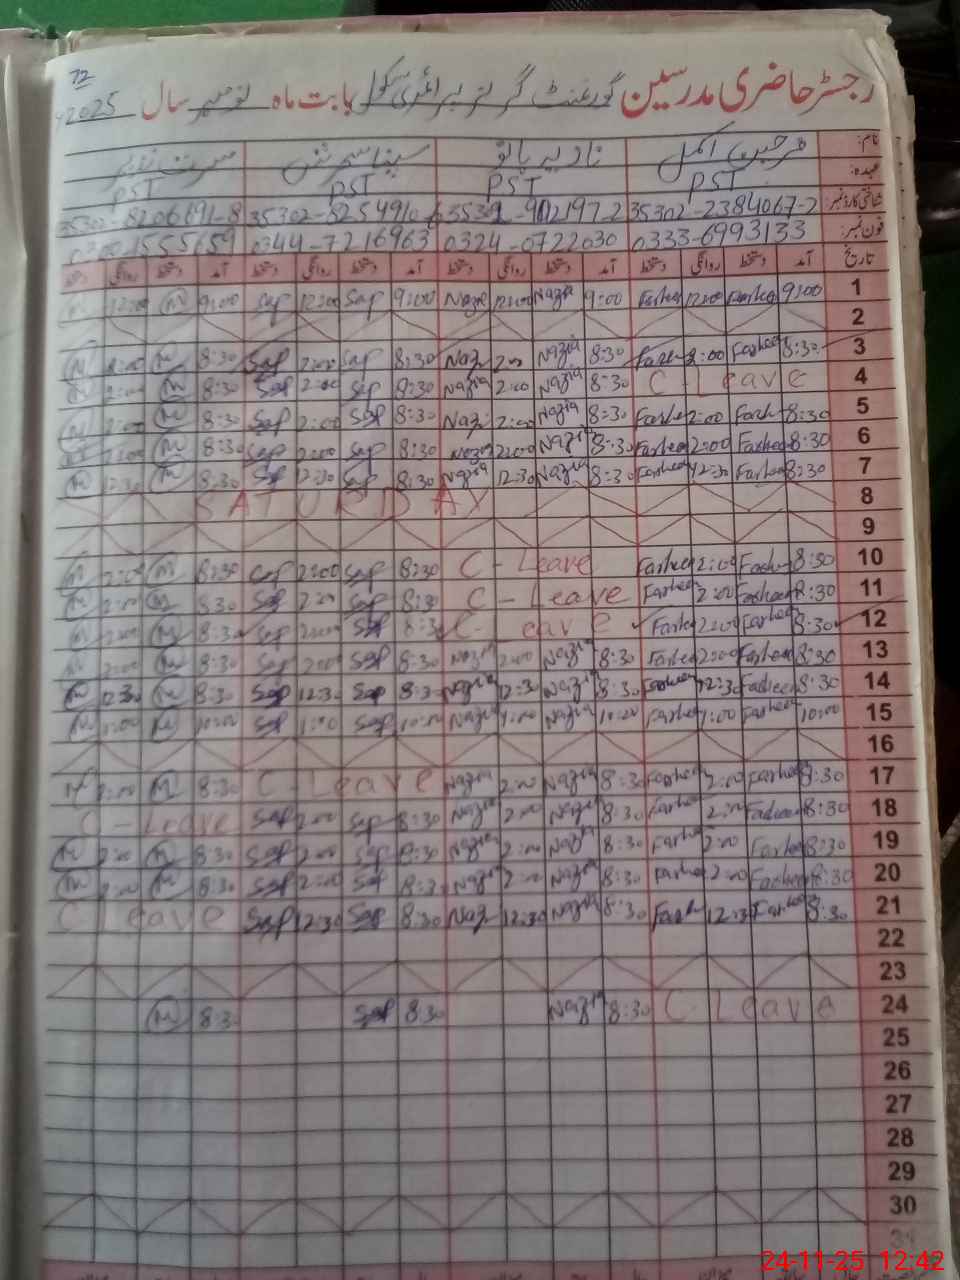 72
رجسٹر حاضری مدرسین گورنمنٹ گرلز پرائمری سکول بابت ماہ نومبر سال 2025
نام:
عہدہ: PST PST PST PST
شناختی کارڈ نمبر: 35302-2384067-2 35302-8254910-6 35302-8206191-8
فون نمبر: 0333-6993133 0324-0722030 0344-7216963
تاریخ آمد دستخط روانگی دستخط آمد دستخط روانگی دستخط آمد دستخط روانگی دستخط آمد دستخط روانگی دستخط
1 9:00 Farhee 12:00 Farhee 9:00 Nazia 12:00 Nazia 9:00 Sap 12:00 Sap 9:00 M 12:00 M
2
3 8:30 Farheen 2:00 Farhe 8:30 Nazia 2:00 Naz 8:30 Sap 2:00 Sap 8:30 M 2:00 M
4 C-Leave 8:30 Nazia 2:00 Nazia 8:30 Sap 2:00 Sap 8:30 M 2:00 M
5 8:30 Farh 2:00 Farhe 8:30 Nazia 2:00 Naz 8:30 Sap 2:00 Sap 8:30 M 2:00 M
6 8:30 Farheen 2:00 Farheen 8:30 Nazia 2:00 Nazia 8:30 Sap 2:00 Sap 8:30 M 2:00 M
7 8:30 Farheen 12:30 Farheen 8:30 Nazia 12:30 Nazia 8:30 Sap 12:30 Sap 8:30 M 12:30 M
8 SATURDAY
9
10 8:30 Farh 2:00 Farheen C-Leave 8:30 Sap 2:00 Sap 8:30 M 2:00 M
11 8:30 Farheen 2:00 Farheen C-Leave 8:30 Sap 2:00 Sap 8:30 M 2:00 M
12 8:30 Farheen 2:00 Farhe C-Leave 8:30 Sap 2:00 Sap 8:30 M 2:00 M
13 8:30 Farheen 2:00 Farhee 8:30 Nazia 2:00 Nazia 8:30 Sap 2:00 Sap 8:30 M 2:00 M
14 8:30 Farheen 12:30 Farheen 8:30 Nazia 12:30 Nazia 8:30 Sap 12:30 Sap 8:30 M 12:30 M
15 10:00 Farheen 1:00 Farheen 10:00 Nazia 1:00 Nazia 10:00 Sap 1:00 Sap 10:00 M 1:00 M
16
17 8:30 Farheen 2:00 Farheen 8:30 Nazia 2:00 Nazia C-Leave 8:30 M 2:00 M
18 8:30 Farheen 2:00 Farheen 8:30 Nazia 2:00 Nazia 8:30 Sap 2:00 Sap C-Leave
19 8:30 Farhee 2:00 Farheen 8:30 Nazia 2:00 Nazia 8:30 Sap 2:00 Sap 8:30 M 2:00 M
20 8:30 Farheen 2:00 Farheen 8:30 Nazia 2:00 Nazia 8:30 Sap 2:00 Sap 8:30 M 2:00 M
21 8:30 Farhee 12:30 Farh 8:30 Nazia 12:30 Naz 8:30 Sap 12:30 Sap C Leave
22
23
24 C Leave 8:30 Nazia 8:30 Sap 8:30 M
25
26
27
28
29
30
31
24-11-25 12:42